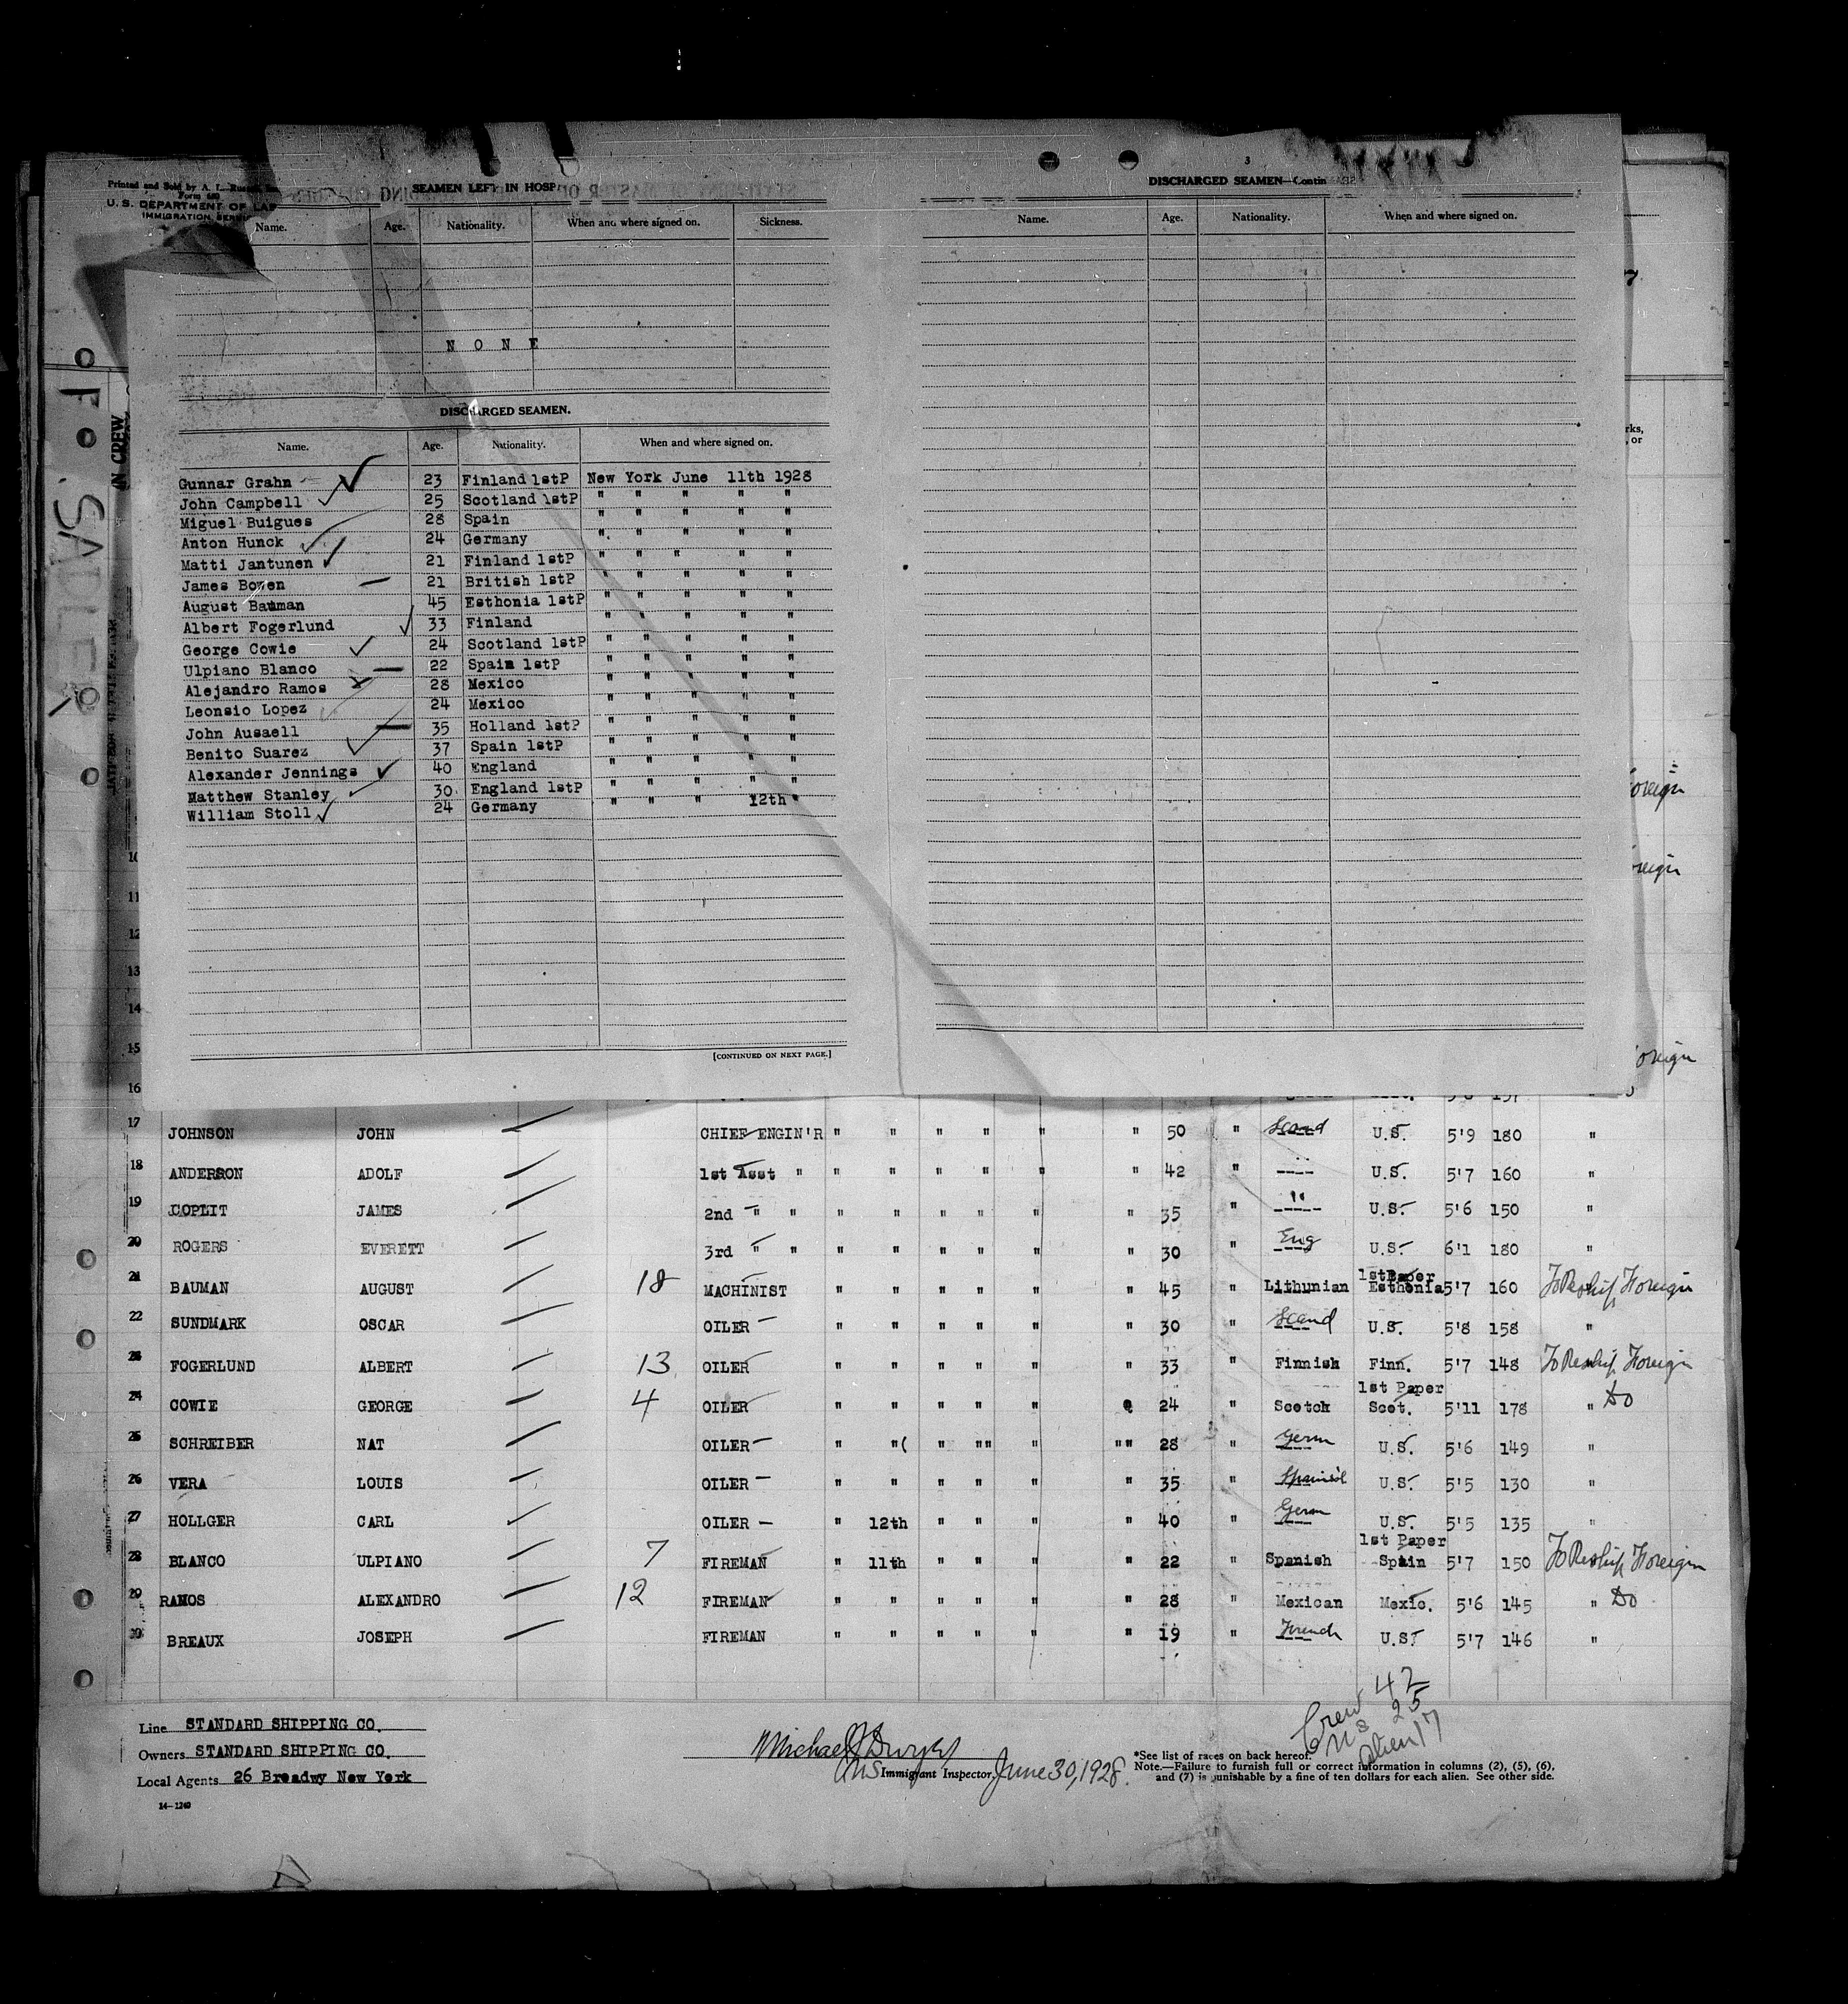 Printed and Sold by A. L. Russell
Form 680
U. S. DEPARTMENT OF LAB
IMMIGRATION SERVICE
SEAMEN LEFT IN HOSP
Name. Age. Nationality. When and where signed on. Sickness.
N O N E
DISCHARGED SEAMEN.
Name. Age. Nationality. When and where signed on.
Gunnar Grahn 23 Finland 1stP New York June 11th 1928
John Campbell 25 Scotland 1stP " " " " "
Miguel Buigues 28 Spain " " " " "
Anton Hunck 24 Germany " " " " "
Matti Jantunen 21 Finland 1stP " " " " "
James Bowen 21 British 1stP " " " " "
August Bauman 45 Esthonia 1stP " " " " "
Albert Fogerlund 33 Finland " " " " "
George Cowie 24 Scotland 1stP " " " " "
Ulpiano Blanco 22 Spain 1stP " " " " "
Alejandro Ramos 28 Mexico " " " " "
Leonsio Lopez 24 Mexico " " " " "
John Ausaell 35 Holland 1stP " " " " "
Benito Suarez 37 Spain 1stP " " " " "
Alexander Jennings 40 England " " " " "
Matthew Stanley 30 England 1stP " " " " "
William Stoll 24 Germany " " " 12th "
[CONTINUED ON NEXT PAGE.]
3
DISCHARGED SEAMEN—Contin
Name. Age. Nationality. When and where signed on.
7
rks,
, or
IN CREW
F. SADLER
oreign
reign
oreign
10
11
12
13
14
15
16
17 JOHNSON JOHN CHIEF ENGIN'R " " " " " " 50 " Scand U.S. 5'9 180 "
18 ANDERSON ADOLF 1st Asst " " " " " " " 42 " ---- U.S. 5'7 160 "
19 COPLIT JAMES 2nd " " " " " " " " 35 " " U.S. 5'6 150 "
20 ROGERS EVERETT 3rd " " " " " " " " 30 " Eng U.S. 6'1 180 "
21 BAUMAN AUGUST 18 MACHINIST " " " " " " 45 " Lithunian 1st Paper Esthonia 5'7 160 To Reship Foreign
22 SUNDMARK OSCAR OILER " " " " " " 30 " Scand U.S. 5'8 158 "
23 FOGERLUND ALBERT 13 OILER " " " " " " 33 " Finnish Finn. 5'7 148 To Reship Foreign
24 COWIE GEORGE 4 OILER " " " " " 24 " Scotch 1st Paper Scot. 5'11 178 " Do
25 SCHREIBER NAT OILER " "( " "" " "" 28 " Germ U.S. 5'6 149 "
26 VERA LOUIS OILER " " " " " " 35 " Spanish U.S. 5'5 130 "
27 HOLLGER CARL OILER " 12th " " " " 40 " Germ U.S. 5'5 135 "
28 BLANCO ULPIANO 7 FIREMAN " 11th " " " " 22 " Spanish 1st Paper Spain 5'7 150 To Reship Foreign
29 RAMOS ALEXANDRO 12 FIREMAN " " " " " " 28 " Mexican Mexic. 5'6 145 " Do
30 BREAUX JOSEPH FIREMAN " " " " " " 19 " French U.S. 5'7 146 "
Crew 42
US 25
Alien 17
Line STANDARD SHIPPING CO.
Owners STANDARD SHIPPING CO.
Local Agents 26 Broadwy New York
14-1240
Michael J Dwyer
Immigrant Inspector. June 30, 1928.
*See list of races on back hereof.
Note.—Failure to furnish full or correct information in columns (2), (5), (6),
and (7) is punishable by a fine of ten dollars for each alien. See other side.